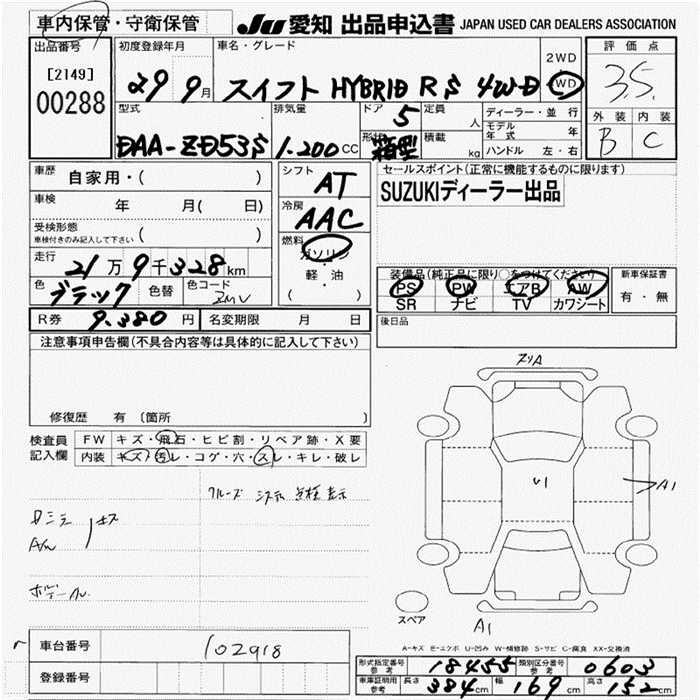 車内保管・守衛保管
JU 愛知 出品申込書 JAPAN USED CAR DEALERS ASSOCIATION
出品番号
[2149]
00288
初度登録年月
29 9月
車名・グレード
スイフト HYBRID RS 4WD
2WD
4WD
評価点
3.5
外装 内装
B C
型式
DAA-ZD53S
排気量
1.200cc
ドア 5
形状 箱型
定員 人
積載 kg
ディーラー・並行
モデル年式 年
ハンドル 左・右
車歴 自家用・( )
車検 年 月( 日)
受検形態
車検付きのみ記入して下さい ( )
走行 21万9千328km
色 ブラック 色替 色コード ZMV
シフト AT
冷房 AAC
燃料 ガソリン・軽油
( ・ )
セールスポイント(正常に機能するものに限ります)
SUZUKIディーラー出品
装備品(純正品に限り○をつけてください)
PS PW エアB AW
SR ナビ TV カワシート
新車保証書
有・無
R券 9.380円 名変期限 月 日
後日品
注意事項申告欄(不具合内容等は具体的に記入して下さい)
修復歴 有〔箇所 〕
検査員記入欄
FW キズ・飛石・ヒビ割・リペア跡・X要
内装 キズ・汚レ・コゲ・穴・スレ・キレ・破レ
クルーズ システム 点検 表示
A/W
スリA
U1
A1
A1
スペア
A-キズ E-エクボ U-凹み W-補修跡 S-サビ C-腐食 XX-交換済
車台番号 102918
登録番号
形式指定番号 参考 18455 類別区分番号 参考 0603
車庫証明用 参考 長さ 384cm 幅 169cm 高さ 152cm